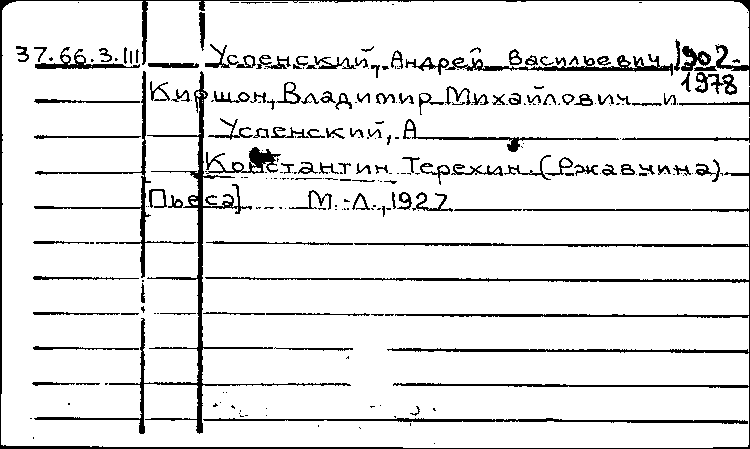 37.66.3.III Успенский, Андрей Васильевич, 1902-
1978
Киршон, Владимир Михайлович и
Успенский, А
Константин Терехин. (Ржавчина)
[Пьеса] М.-Л., 1927